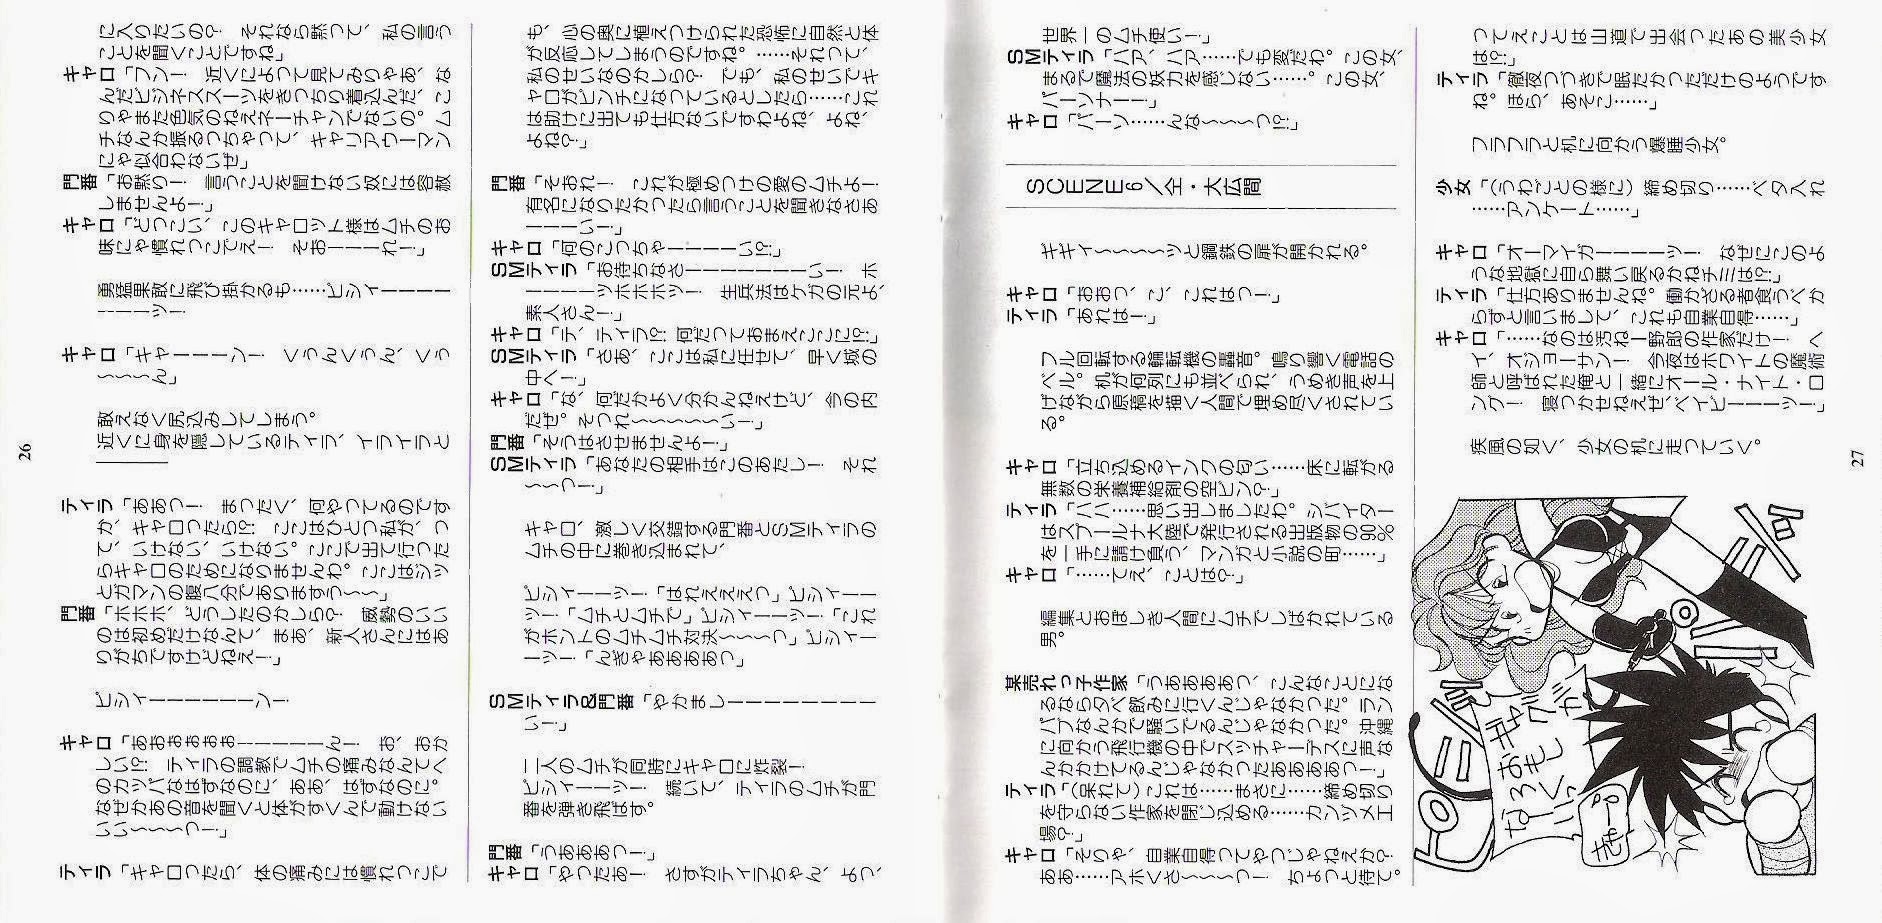 に入りたいの? それなら黙って、私の言う
ことを聞くことですね」
キャロ「フン! 近くによって見てみりゃあ、な
んだビジネススーツをきっちり着込んだ、こ
りゃまた色気のねえネーチャンでないの。ム
チなんか振るっちゃって、キャリアウーマン
にゃ似合わないぜ」
門番「お黙り! 言うことを聞けない奴には容赦
しませんよー!」
キャロ「どっこい、このキャロット様はムチのお
味にゃ慣れっこでえ! そおーーーれー!」
勇猛果敢に飛び掛かるも……ビシィーーーー
ーーーーッ!
キャロ「キャーーーーン! くぅんくぅん、くぅ
〜〜〜〜ん」
敢えなく尻込みしてしまう。
近くに身を隠しているティラ、イライラと
————
ティラ「ああっ! まったく、何やってるのです
か、キャロったら!? ここはひとつ私が、っ
て、いけない、いけない。ここで出て行った
らキャロのためになりませんわ。ここはジッ
とガマンの腹八分でありますぅ〜〜」
門番「ホホホ、どうしたのかしら? 威勢のいい
のは初めだけなんて、まあ、新人さんにはあ
りがちですけどねえー!」
ビシィーーーーーーーン!
キャロ「あおぉぉぉぉーーーーーーん! お、おか
しい!? ティラの調教でムチの痛みなんてへ
のカッパなはずなのに、ああ、はずなのに。
なぜかあの音を聞くと体がすくんで動けない
いい〜〜〜〜っ!」
ティラ「キャロったら、体の痛みには慣れっこで
も、心の奥に植えつけられた恐怖に自然と体
が反応してしまうのですね。……それって、
私のせいなのかしら? でも、私のせいでキ
ャロがピンチになっているとしたら……これ
は助けに出ても仕方ないですわよね、よね、
よね?」
門番「そおれー! これが極めつけの愛のムチよー!
有名になりたかったら言うことを聞きなさあ
ーーーい!」
キャロ「何のこっちゃーーーーーい!?」
SMティラ「お待ちなさーーーーーーーーい! ホ
ーーーーッホホホッ! 生兵法はケガの元よ、
素人さん!」
キャロ「テ、ティラ!? 何だっておまえここに!?」
SMティラ「さあ、ここは私に任せて、早く城の
中へ!」
キャロ「な、何だかよく分かんねえけど、今の内
だぜ。そっれ〜〜〜〜〜い!」
門番「そうはさせませんよー!」
SMティラ「あなたの相手はこのあたし! それ
〜〜っ!」
キャロ、激しく交錯する門番とSMティラの
ムチの中に巻き込まれて、
ビシィーーッ!「はれえええっ」ビシィーー
ッ!「ムチとムチで」ビシィーーッ!「これ
がホントのムチムチ対決〜〜〜〜っ」ビシィー
ーッ!「んぎゃああああっ」
SMティラ&門番「やかましーーーーーーーーー
いー!」
二人のムチが同時にキャロに炸裂!
ビシィーーッ! 続いて、ティラのムチが門
番を弾き飛ばす。
門番「うあああっー!」
キャロ「やったあー! さすがティラちゃん、よっ、
26
世界一のムチ使い!」
SMティラ「ハア、ハア……でも変だわ。この女、
まるで魔法の妖力を感じない……。この女、
パーソナー!」
キャロ「パーソ……んな〜〜〜っ!?」
SCENE6/全・大広間
ギギィ〜〜〜〜〜ッと鋼鉄の扉が開かれる。
キャロ「おおっ、こ、これはっー!」
ティラ「あれはー!」
フル回転する輪転機の轟音。鳴り響く電話の
ベル。机が何列にも並べられ、うめき声を上
げながら原稿を描く人間で埋め尽くされてい
る。
キャロ「立ち込めるインクの匂い……床に転がる
無数の栄養補給剤の空ビン?」
ティラ「ハハ……思い出しましたわ。シバイター
はスプールナ大陸で発行される出版物の90%
を一手に請け負う、マンガと小説の町……」
キャロ「……てえ、ことは?」
編集とおぼしき人間にムチでしばかれている
男。
某売れっ子作家「うああああっ、こんなことにな
るなら夕べ飲みに行くんじゃなかった。ラン
パブなんかで騒いでるんじゃなかった。沖縄
に向かう飛行機の中でスッチャーデスに声な
んかかけてるんじゃなかったあああああっー!」
ティラ「(呆れて)これは……まさに……締め切り
を守らない作家を閉じ込める……カンヅメ工
場?」
キャロ「そりゃ、自業自得ってやつじゃねえか?
ああ……アホくさ〜〜〜〜っ! ちょっと待て。
ってえことは山道で出会ったあの美少女
は!?」
ティラ「徹夜つづきで眠たかっただけのようです
ね。ほら、あそこ……」
フラフラと机に向かう爆睡少女。
少女「(うわごとの様に)締め切り……ベタ入れ
……アンケート……」
キャロ「オーマイガーーーーーッ! なぜにこのよ
うな地獄に自ら舞い戻るかねチミは!?」
ティラ「仕方ありませんね。働かざる者食うべか
らずと言いまして、これも自業自得……」
キャロ「……なのは汚ねー野郎の作家だけ! ヘ
イ、オジョーサン! 今夜はホワイトの魔術
師と呼ばれた俺と一緒にオール・ナイト・ロ
ング! 寝つかせねえぜ、ベイビーーーッ!」
疾風の如く、少女の机に走っていく。
ギャグが
おもし
なろく
いっ
きゅーっ
27